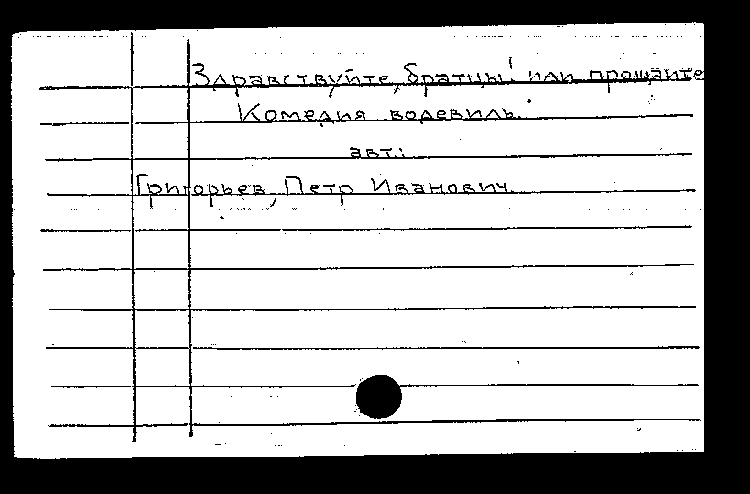 Здравствуйте, братцы! или прощайте
Комедия водевиль.
авт.:
Григорьев, Петр Иванович.